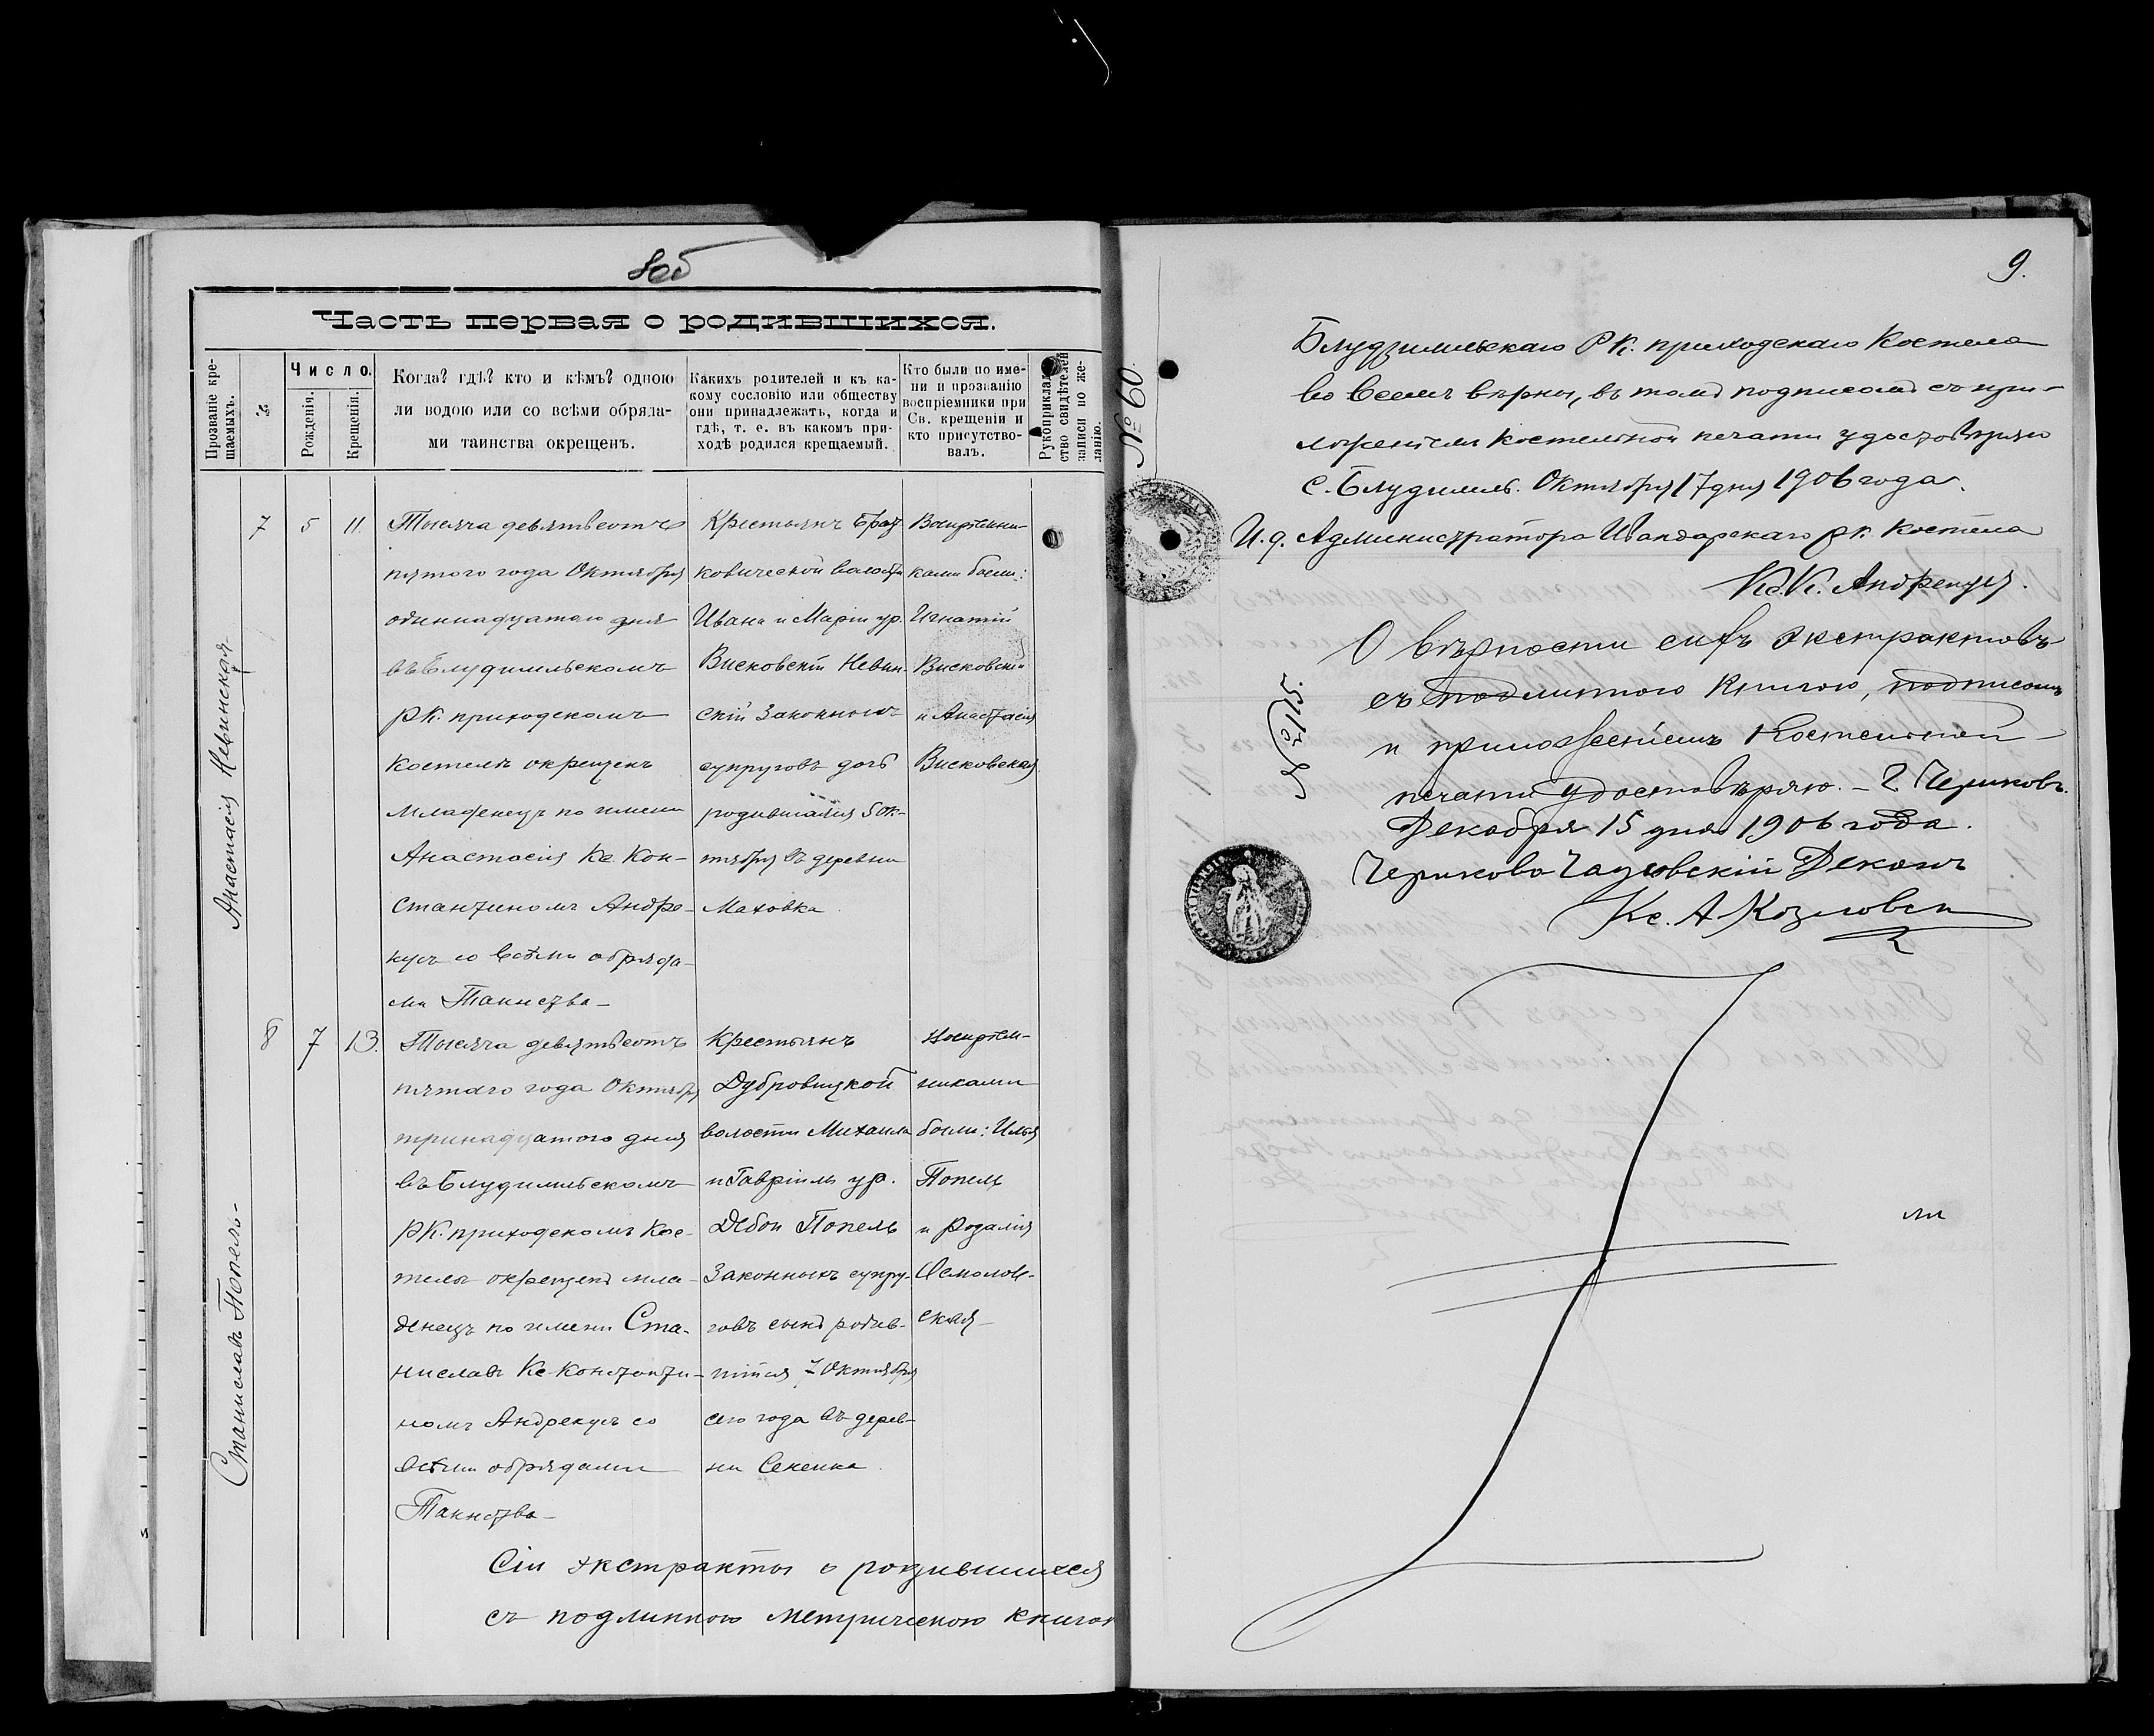 8об
Часть первая о родившихся.
Прозваніе кре-
щаемыхъ.
№
Число.
Рожденія.
Крещенія.
Когда? гдѣ? кто и кѣмъ? одною
ли водою или со всѣми обряда-
ми таинства окрещенъ.
Какихъ родителей и къ ка-
кому сословію или обществу
они принадлежатъ, когда и
гдѣ, т. е. въ какомъ при-
ходѣ родился крещаемый.
Кто были по име-
ни и прозванію
воспріемники при
Св. крещеніи и
кто присутство-
валъ.
Рукоприклад
ство свидѣтелей
записи по же-
ланію.
Анастасія Невинская
7
5
11.
Тысяча девятьсотъ
пятого года Октября
одиннадцатаго дня
въ Блудимльскомъ
РК. приходскомъ
костелѣ окрещенъ
младенецъ по имени
Анастасія Кс. Кон-
стантиномъ Андре-
кусъ со всѣми обряда-
ми Таинства-
Крестьянъ
ковической волости
Ивана и Маріи ур.
Висковскій Невин-
скій законныхъ
супруговъ дочь
родившаяся 5 Ок-
тября въ деревни
Маховка
Воспріемни-
ками были:
Игнатій
Висковскій
и Анастасія
Висковская
Станиславъ Попель-
8
7
13.
Тысяча девятьсотъ
пятаго года Октября
тринадцатого дня
въ Блудимльскомъ
РК. приходскомъ кос-
телѣ окрещенъ мла-
денецъ по имени Ста-
ниславъ Кс. Константи-
номъ Андрекусъ со
всѣми обрядами
Таинства-
Крестьянъ
Дубровицкой
волости Михаила
и ур.
Попель
законныхъ супру-
говъ сынъ родив-
шійся 7 Октября
сего года въ дерев-
ни Сененка
Воспріем-
никами
были: Илья
Попель
и Розалія
Осмолов-
ская-
Сіи экстракты о родившихся
съ подлинною метрическою книгою
9.
№ 60.
Блудзимльскаго РК. приходскаго Костела
во всемъ вѣрны, въ томъ подписомъ съ при-
ложеніемъ костельной печати удостовѣряю
с. Блудимль. Октября 17 дня 1906 года.
И. д. Администратора РК. Костела
Кс. К. Андрекусъ.
№ 215.
О вѣрности сихъ экстрактовъ
съ подлинною книгою, подписомъ
и приложеніемъ Костельной
печати удостовѣряю. - г. Чериковъ.
Декабря 15 дня 1906 года.
Чериково Чаусовскій Деканъ
Кс. А Козловск